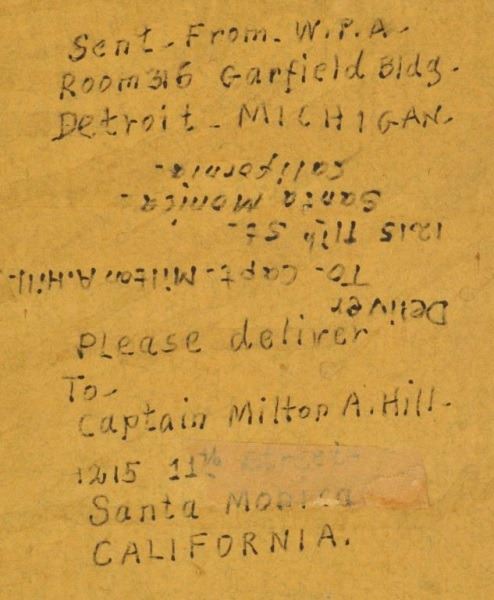 Sent - From - W.P.A -
Room 316 Garfield Bldg.
Detroit - MICHIGAN.
Deliver
To - Capt - Milton A. Hill -
1215 11th St -
Santa Monica -
California -
Please deliver
To -
Captain Milton A. Hill -
1215 11th Street -
Santa Monica
CALIFORNIA.